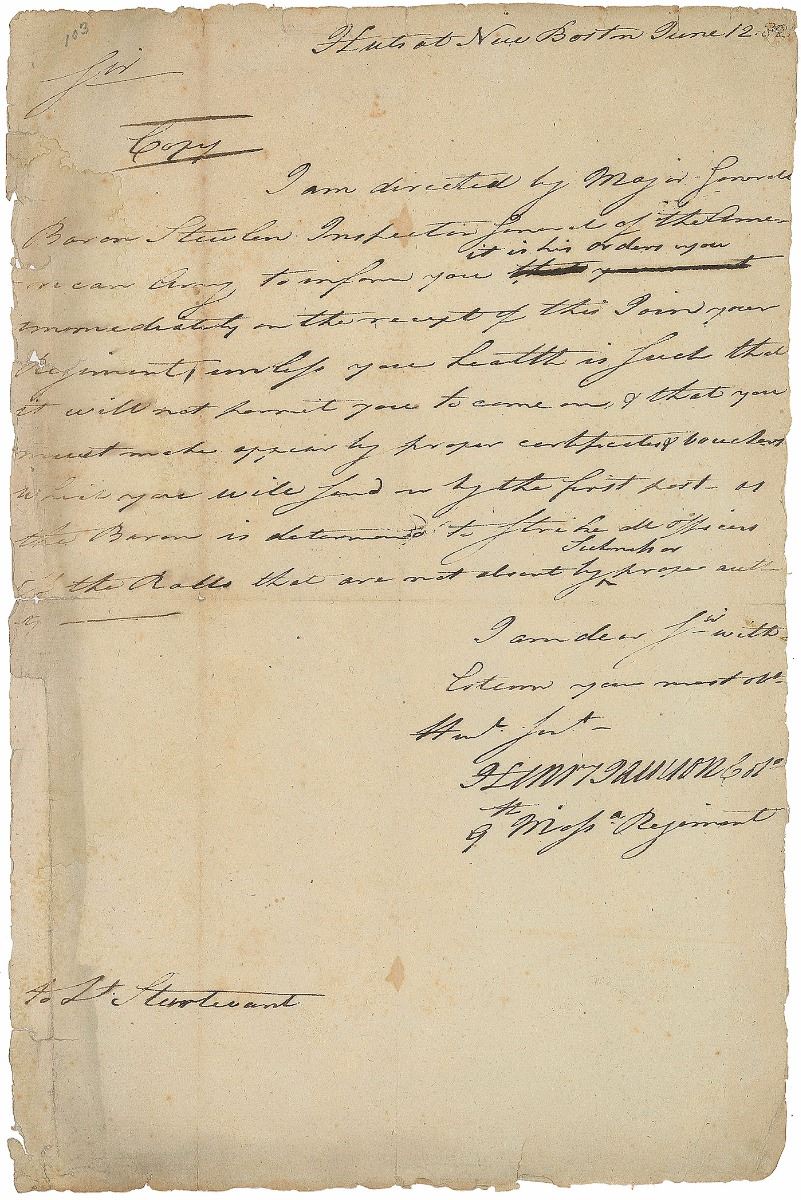 103
Huts at New Boston June 12. 82
Sir
Copy
I am directed by Major General
Baron Steuben Inspector General of the Ame-
it is his orders you
rican Army to inform you
immediately on the receipt of this Join your
Regiment, unless your health is such that
it will not permit you to come on, & that you
must make appear by proper certificates & vouchers
which you will send on by the first post as
the Baron is determined to strike all officers
off the Rolls that are not absent by proper auth-
I am dear Sir with
Esteem your most obt
Humb Servt
Henry Jackson Colo
9th Massa Regiment
to Lt Sturtevant